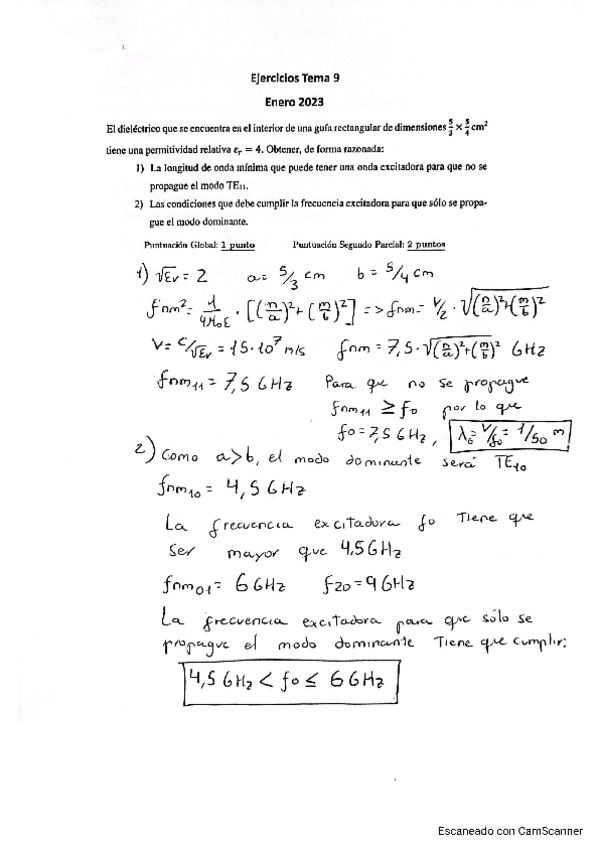 Ejercicios Tema 9
Enero 2023
El dieléctrico que se encuentra en el interior de una guía rectangular de dimensiones 5/3 × 5/4 cm²
tiene una permitividad relativa εr = 4. Obtener, de forma razonada:
1) La longitud de onda mínima que puede tener una onda excitadora para que no se
propague el modo TE₁₁.
2) Las condiciones que debe cumplir la frecuencia excitadora para que sólo se propa-
gue el modo dominante.
Puntuación Global: 1 punto Puntuación Segundo Parcial: 2 puntos
1) √εr = 2 a = 5/3 cm b = 5/4 cm
fnm² = 1/4μ₀ε · [(n/a)² + (m/b)²] => fnm = V/2 · √(n/a)²+(m/b)²
V = C/√εr = 15·10⁷ m/s fnm = 7,5·√(n/a)²+(m/b)² GHz
fnm₁₁ = 7,5 GHz Para que no se propague
fnm₁₁ ≥ fo por lo que
fo = 7,5 GHz, λ₀ = V/fo = 1/50 m
2) Como a>b, el modo dominante será TE₁₀
fnm₁₀ = 4,5 GHz
La frecuencia excitadora fo Tiene que
ser mayor que 4,5GHz
fnm₀₁ = 6 GHz f20 = 9 GHz
La frecuencia excitadora para que sólo se
propague el modo dominante Tiene que cumplir:
4,5 GHz < fo ≤ 6 GHz
Escaneado con CamScanner